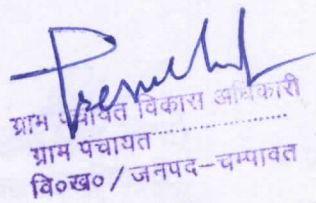 ग्राम पंचायत विकास अधिकारी
ग्राम पंचायत....................
वि०ख० / जनपद-चम्पावत